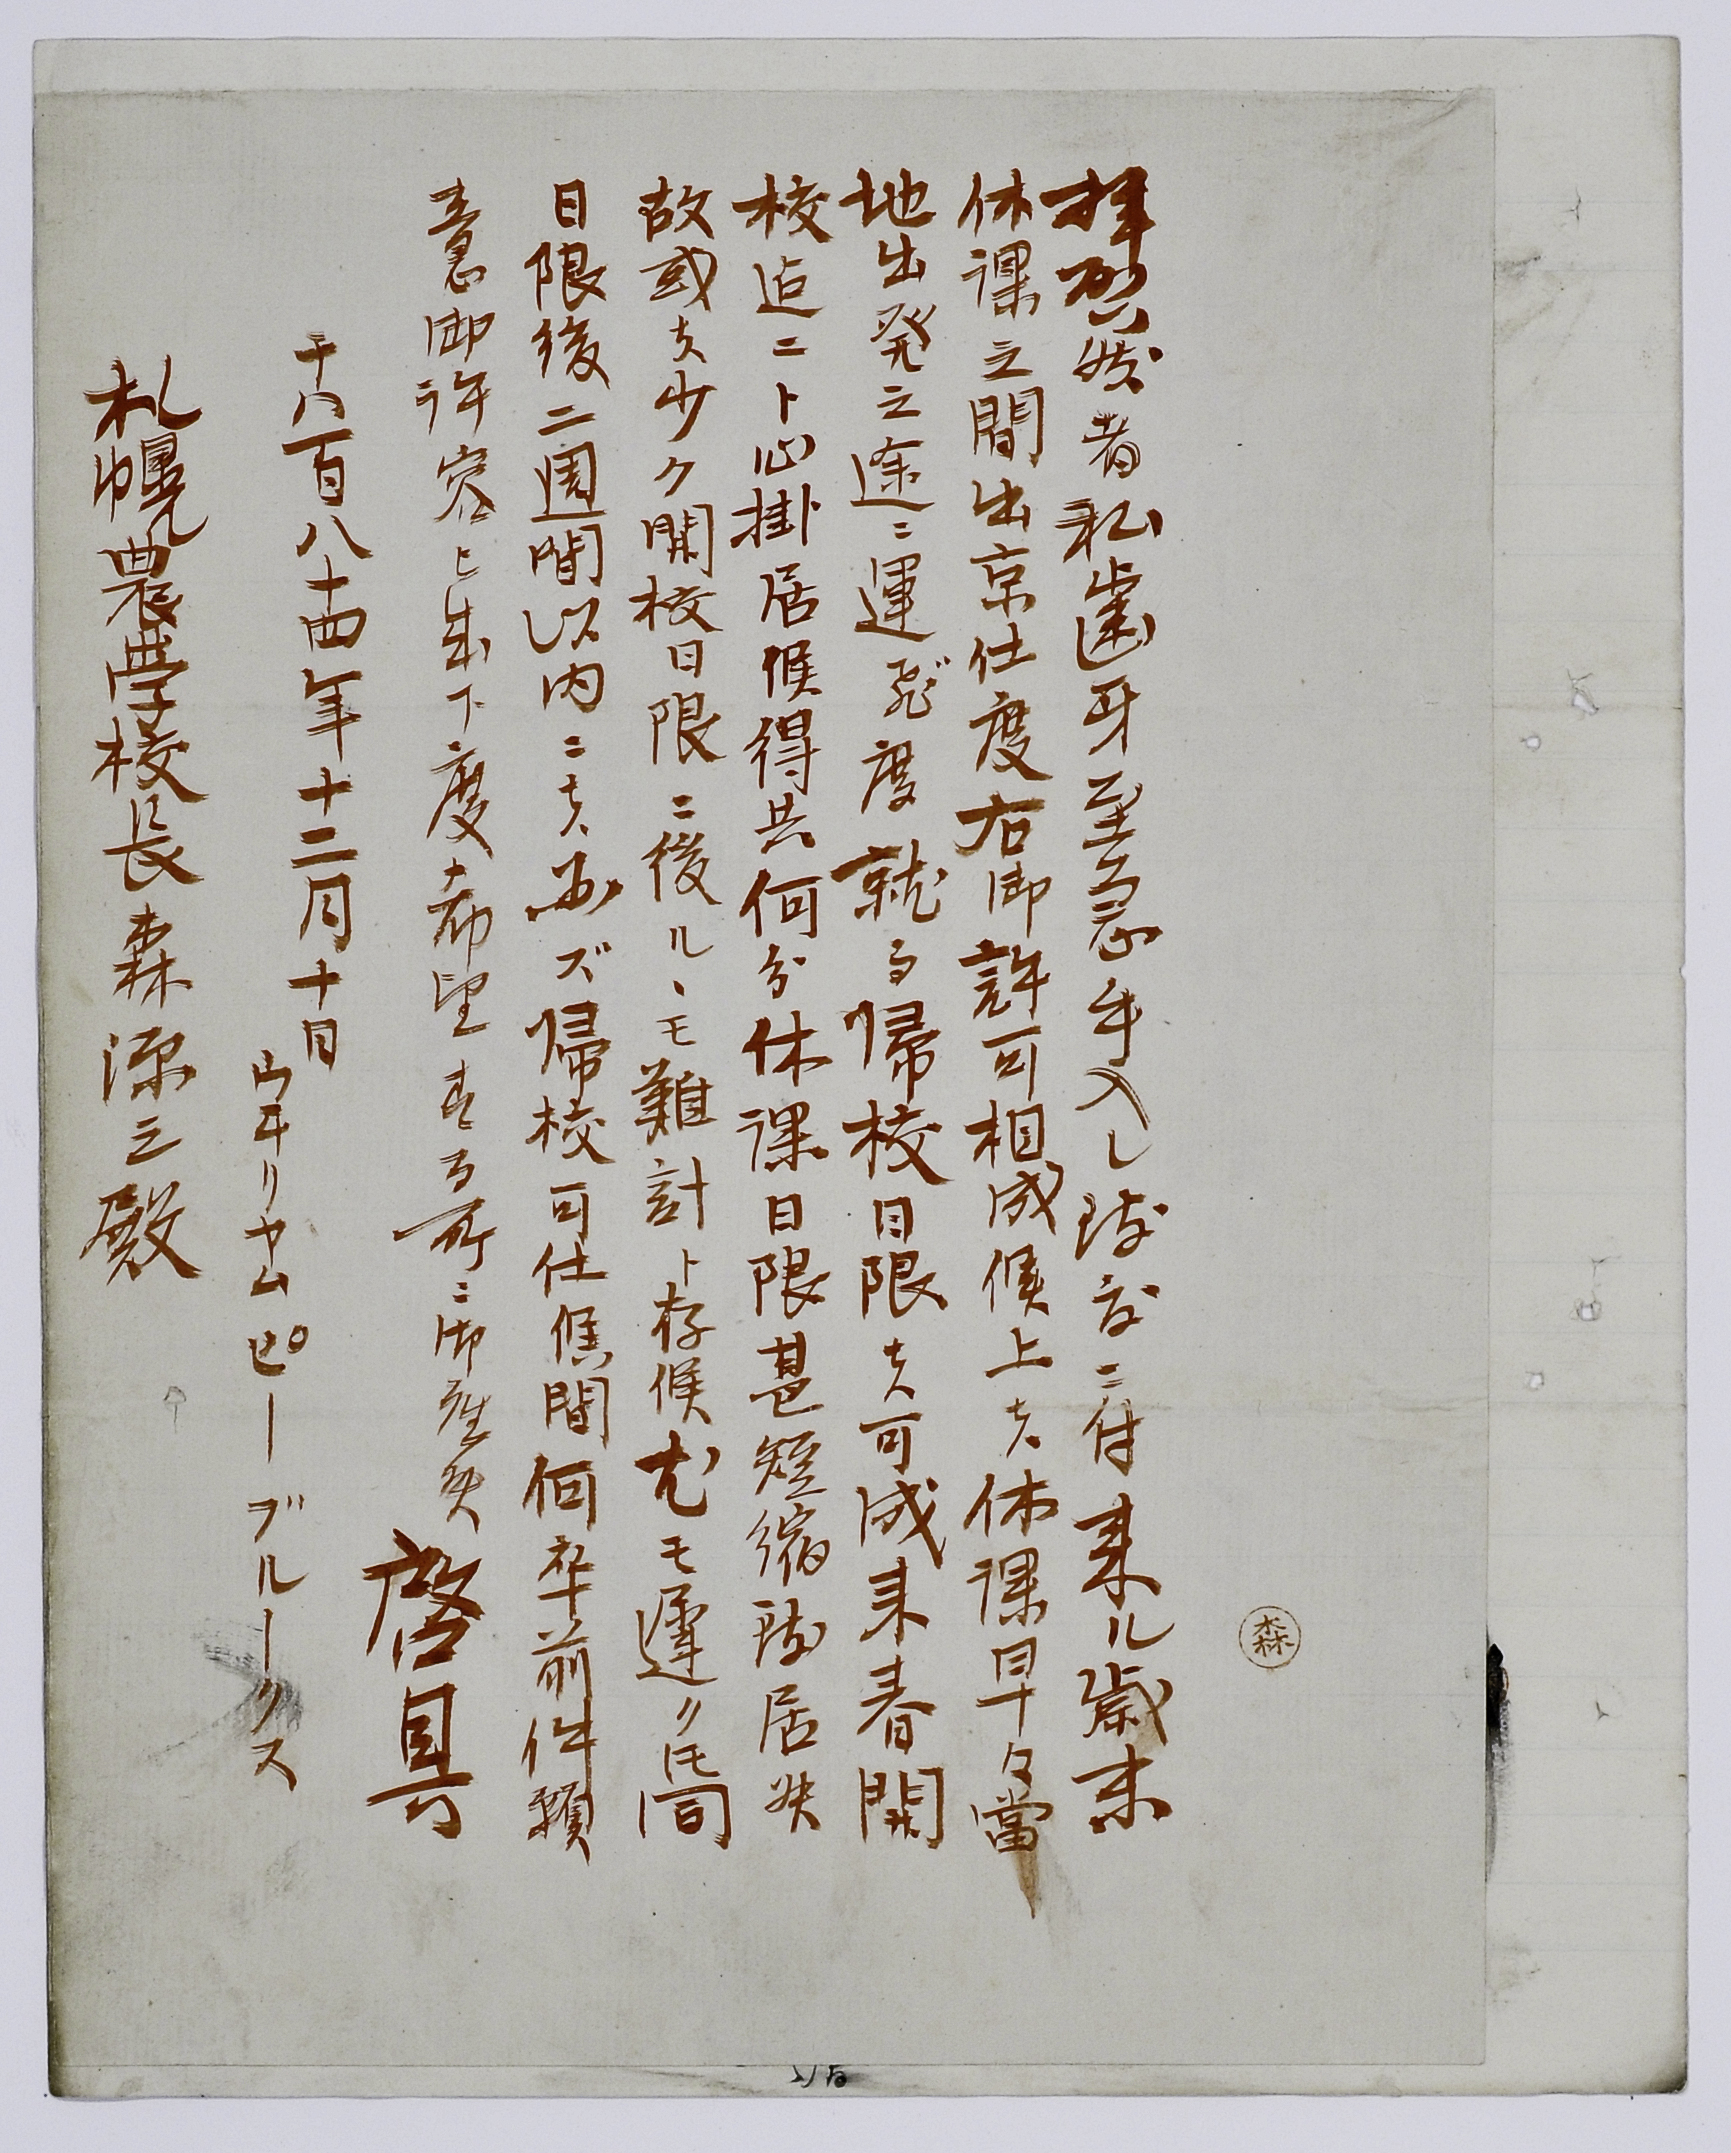 拝啓然者私歯牙至急手入レ致度ニ付来ル歳末
休課之間出京仕度右御許可相成候上ハ休課早々當
地出発之途ニ運ビ度就而帰校日限ハ可成来春開
校迄ニト心掛居候得共何分休課日限甚短縮致居候
故或ハ少ク開校日限ニ後ルヽモ難計ト存候尤モ遅クトモ同
日限後二週間以内ニハ必ズ帰校可仕候間何卒前件願
意御許容被成下度希望する所ニ御座候 啓具
千八百八十四年十二月十日
ウヰリヤム ピー ブルークス
札幌農學校長森源三殿
森